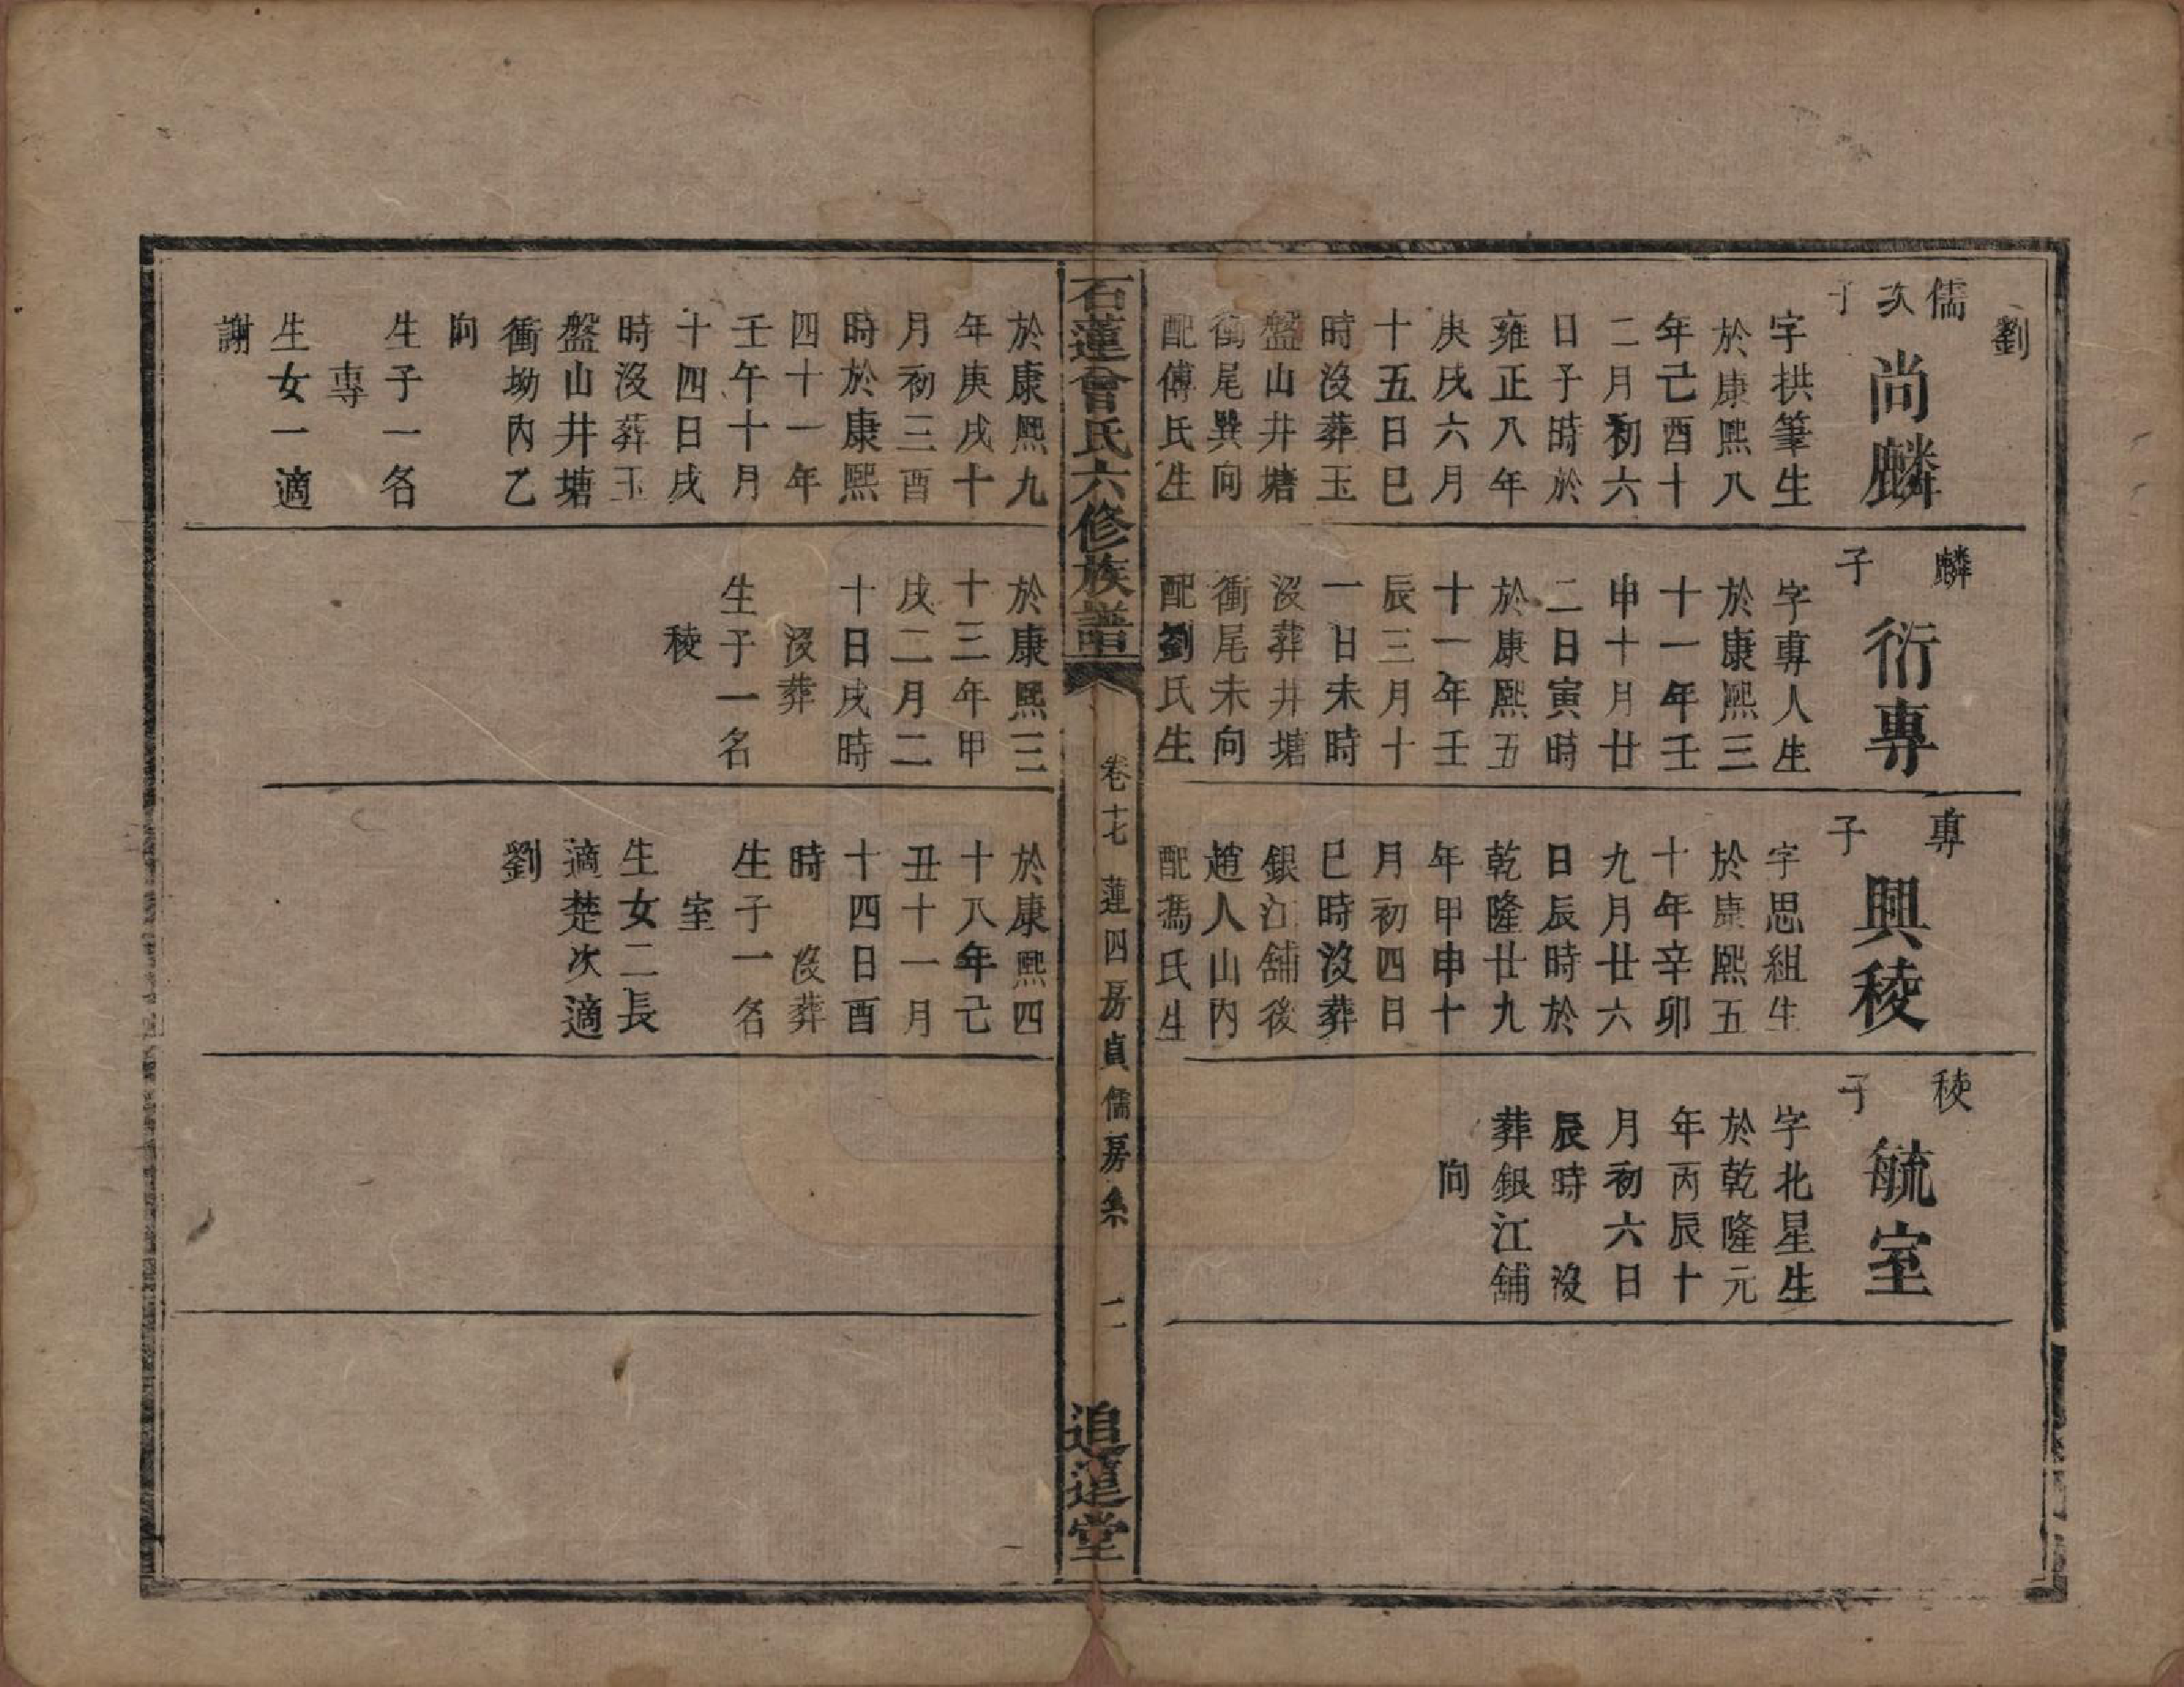 劉
儒次子
尚麟
字拱筆生
於康熙八
年己酉十
二月初六
日子時於
雍正八年
庚戌六月
十五日巳
時沒葬玉
盤山井塘
衝尾巽向
配傅氏生
於康熙九
年庚戌十
月初三酉
時於康熙
四十一年
壬午十月
十四日戌
時沒葬玉
盤山井塘
衝坳內乙
向
生子一名
專
生女一適
謝
麟子
衍專
字專人生
於康熙三
十一年壬
申十月廿
二日寅時
於康熙五
十一年壬
辰三月十
一日未時
沒葬井塘
衝尾未向
配劉氏生
於康熙三
十三年甲
戌二月二
十日戌時
沒葬
生子一名
稜
專子
興稜
字思組生
於康熙五
十年辛卯
九月廿六
日辰時於
乾隆廿九
年甲申十
月初四日
巳時沒葬
銀江舖後
趙人山內
配馮氏生
於康熙四
十八年己
丑十一月
十四日酉
時 沒葬
生子一名
室
生女二長
適楚次適
劉
稜子
毓室
字北星生
於乾隆元
年丙辰十
月初六日
辰時 沒
葬銀江舖
向
石蓮曾氏六修族譜
卷十七 蓮四房貞儒房系 二
追遠堂